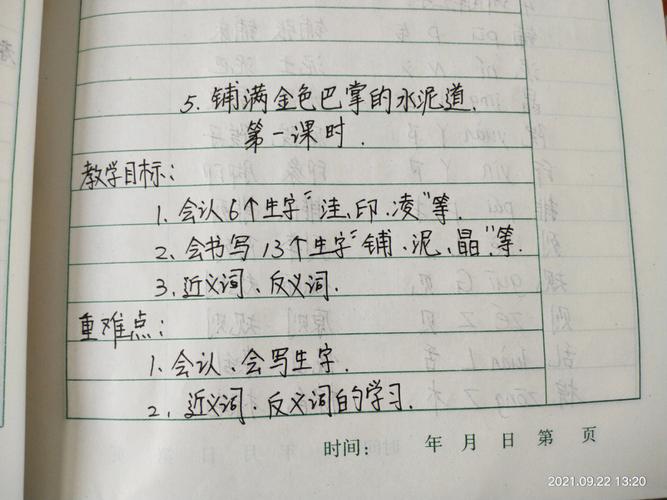 5. 铺满金色巴掌的水泥道.
第一课时.
教学目标:
1. 会认6个生字"洼、印、凌"等.
2、会书写13个生字"铺、泥、晶"等.
3、近义词、反义词.
重难点:
1、会认、会写生字.
2、近义词、反义词的学习.
时间: 年 月 日 第 页
2021.09.22 13:20